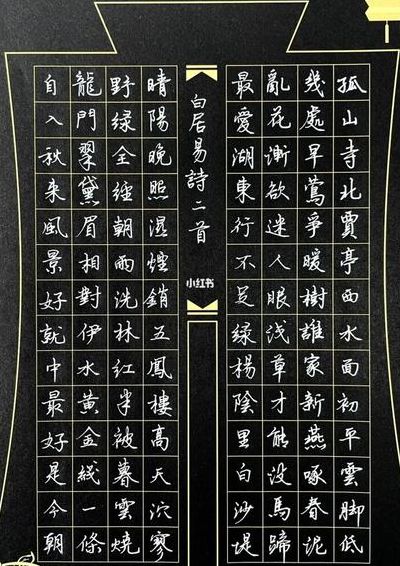 孤山寺北賈亭西水面初平雲脚低
幾處早鶯爭暖樹誰家新燕啄春泥
亂花漸欲迷人眼浅草才能没馬蹄
最愛湖東行不足綠楊陰里白沙堤
白居易詩二首
小红书
晴陽晚照濕煙銷五鳳樓高天泬寥
野綠全經朝雨洗林紅半被暮雲燒
龍門翠黛眉相對伊水黃金綫一條
自入秋來風景好就中最好是今朝